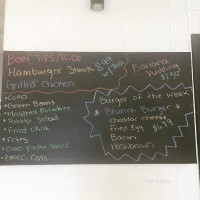 Beef Tips/Rice
Hamburger Steak
Grilled Chicken
8.99
Banana
Pudding
• Corn
• Green Beans
• Mashed Potatoes
• Potato Salad
• Fried Okra
• Fries
• Pasta Salad
Burger of the Week
Brunch Burger
Cheddar cheese
Fried Egg
Bacon
Hashbrown